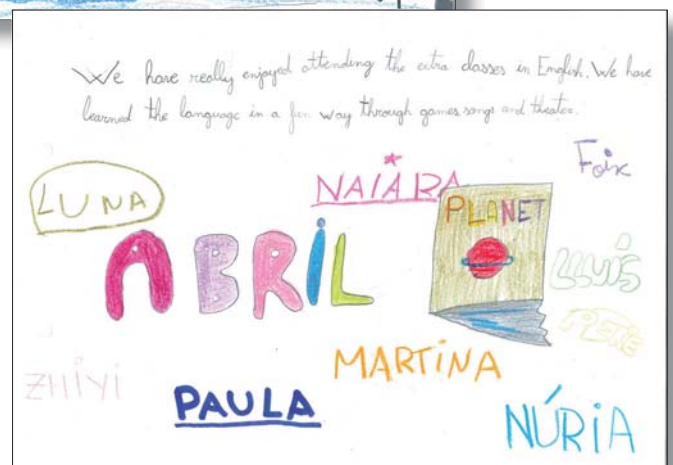 We have really enjoyed attending the extra classes in English. We have
learned the language in a fun way through games songs and theater.
Foix
NAIARA
LUNA
PLANET
ABRIL
LLUÍS
PERE
MARTINA
ZHIYI
PAULA
NÚRIA